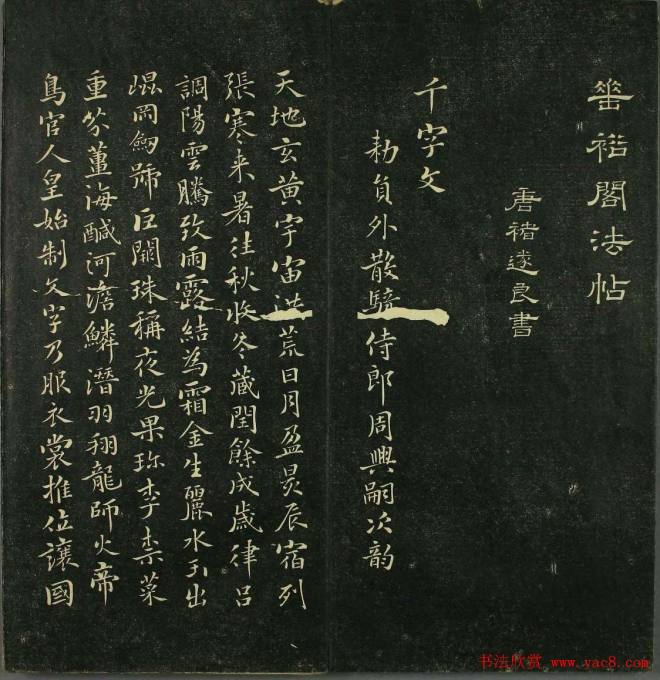 垂裕閣法帖
唐褚遂良書
千字文
勑員外散騎侍郎周興嗣次韵
天地玄黄宇宙洪荒日月盈昃辰宿列
張寒来暑往秋收冬蔵閏餘成歲律吕
調陽雲騰致雨露結為霜金生麗水玉出
崐岡劒號巨闕珠稱夜光果珎李柰菜
重芥薑海醎河澹鱗潛羽翔龍師火帝
鳥官人皇始制文字乃服衣裳推位讓國
书法欣赏 www.yac8.com